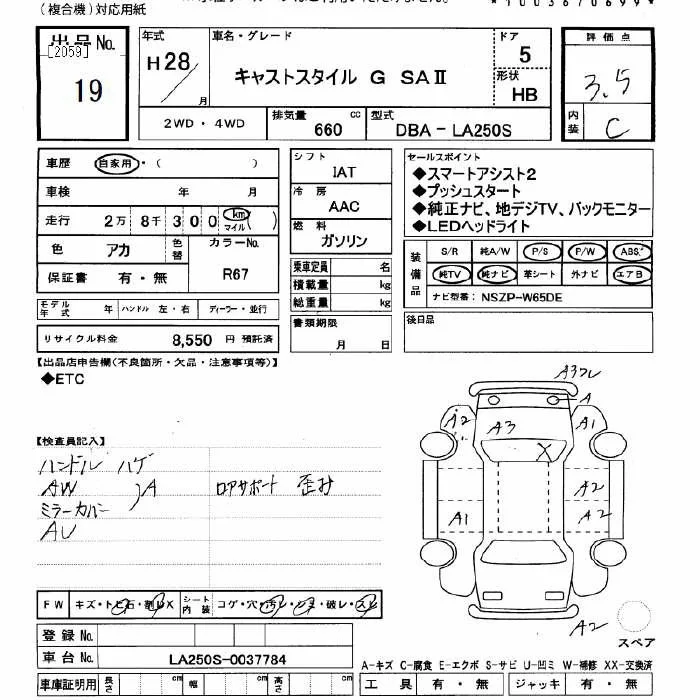 (複合機)対応用紙
*1003670699*
出品No. [2059] 19
年式 H28 / 月
車名・グレード キャストスタイル G SAⅡ
ドア 5
形状 HB
評価点 3.5
内装 C
2WD・4WD
排気量 660 cc
型式 DBA-LA250S
車歴 自家用・( )
車検 年 月
走行 2万 8千 300 km マイル ( )
色 アカ 色替 カラーNo. R67
保証書 有・無
モデル年式 年 ハンドル 左・右 ディーラー・並行
リサイクル料金 8,550 円 預託済
シフト IAT
冷房 AAC
燃料 ガソリン
乗車定員 名
積載量 kg
総重量 kg
書類期限 月 日
セールスポイント
◆スマートアシスト2
◆プッシュスタート
◆純正ナビ、地デジTV、バックモニター
◆LEDヘッドライト
装備品 S/R 純A/W P/S P/W ABS
純TV 純ナビ 革シート 外ナビ エアB
ナビ型番: NSZP-W65DE
後日品
【出品店申告欄(不良箇所・欠品・注意事項等)】
◆ETC
【検査員記入】
ハンドル ハゲ
AW )A ロアサポート 歪み
ミラーカバー
AU
A3フレ
A
A2 A3 A1
X
A2
A1 A2
A2
スペア
FW キズ・トビ石・割レX シート内装 コゲ・穴・汚レ・シミ・破レ・スレ
登録No.
車台No. LA250S-0037784
車庫証明用 長さ cm 幅 cm 高さ cm
A-キズ C-腐食 E-エクボ S-サビ U-凹ミ W-補修 XX-交換済
工具 有・無 ジャッキ 有・無